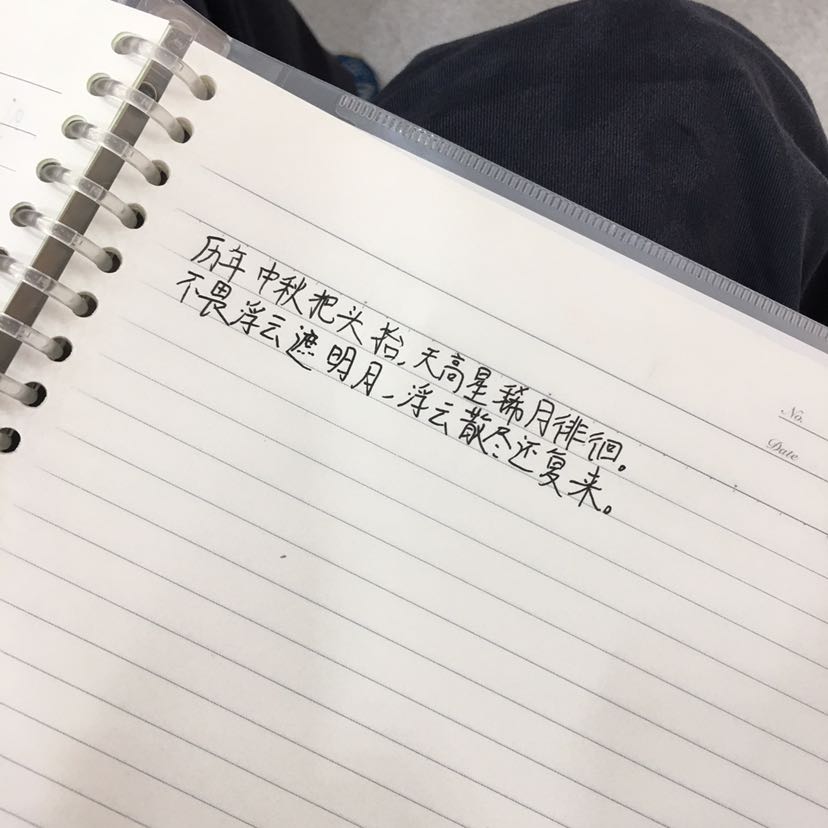 No.
Date
历年中秋把头抬,天高星稀月徘徊。
不畏浮云遮明月,浮云散尽还复来。